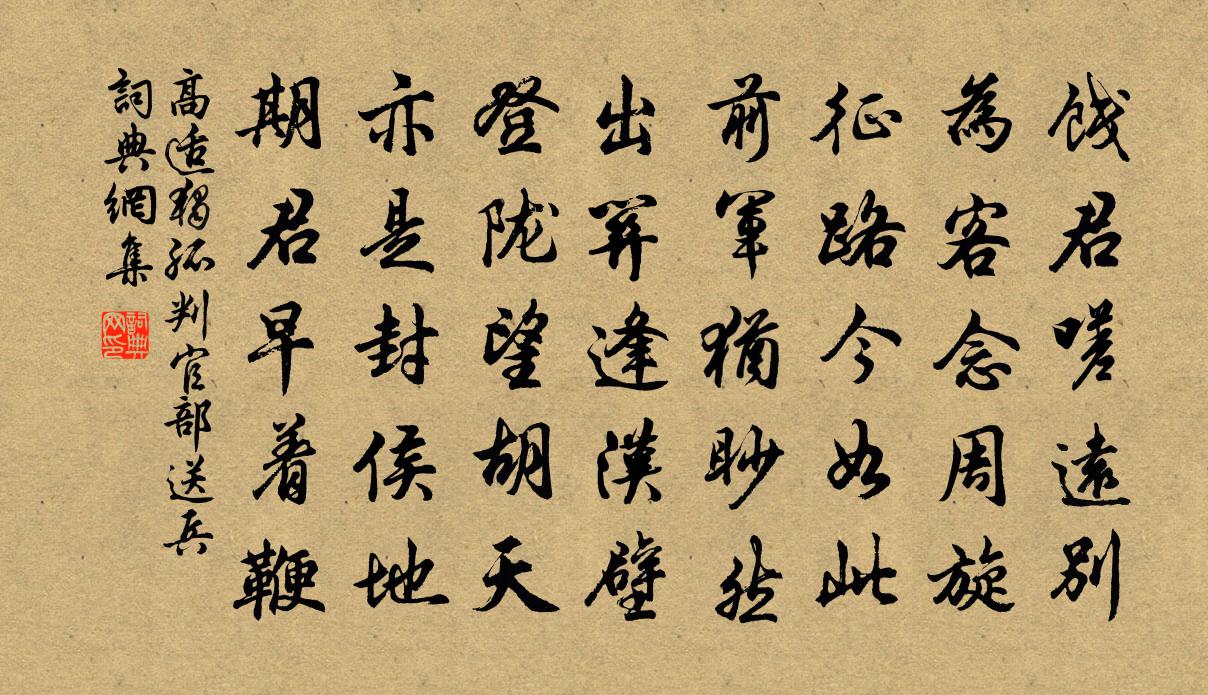 餞君嗟遠別
為客念周旋
征路今如此
前軍猶眇然
出関逢漢壁
登陇望胡天
亦是封侯地
期君早着鞭
高适獨孤判官部送兵
詞典網集
詞典网印